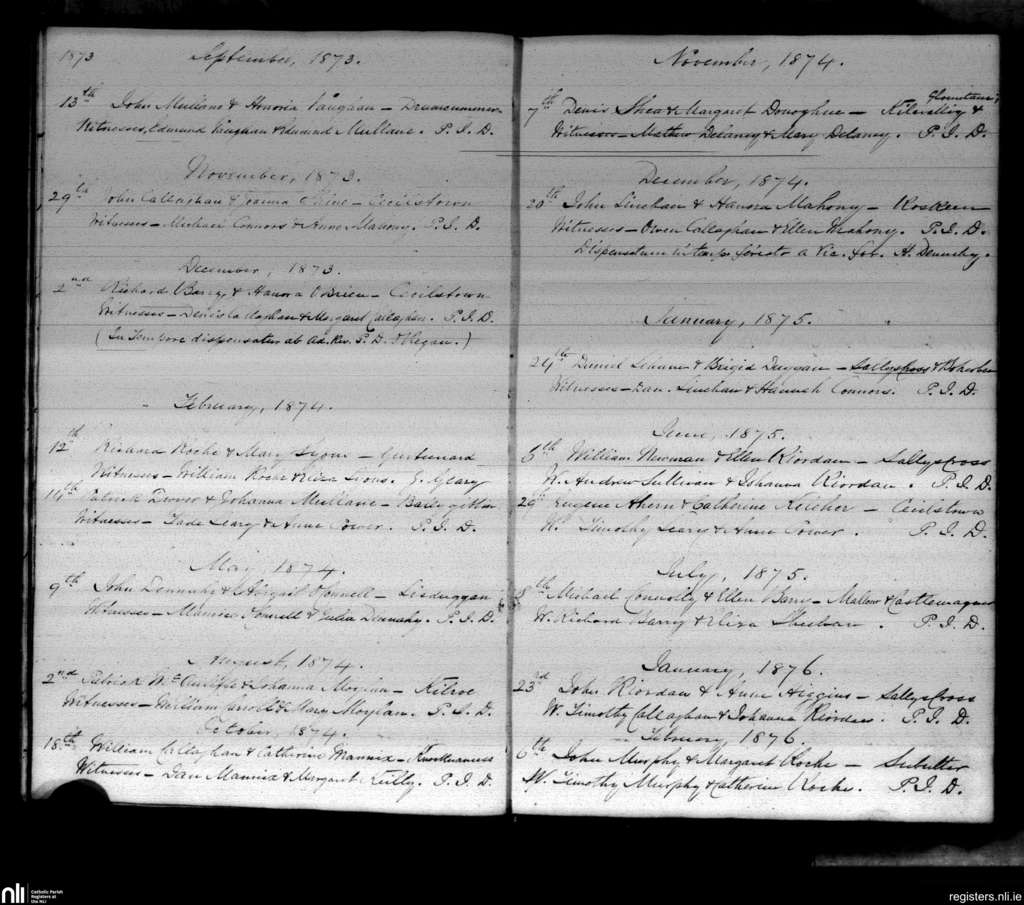 1873 September, 1873.
13th John Mullane & Honoria Vaughan — Drumcummer
Witnesses, Edmund Vaughan & Edmund Mullane. P. I. D.
November, 1873.
29th John Callaghan & Joanna Cline — Cecilstown
Witnesses — Michael Connors & Anne Mahony. P. I. D.
December, 1873.
2nd Richard Barry & Hanora OBrien — Cecilstown
Witnesses — Denis Callaghan & Margaret Callaghan. P. I. D.
(In Tempore dispensatur ab Ad. Rev. P. D. O'Regan.)
February, 1874.
12th Richard Roche & Mary Lyons —
Witnesses — William Roche & Eliza Lyons. G. Geary
14th Patrick Power & Johanna Mullane —
Witnesses — Tade Leary & Anne Power. P. I. D.
May, 1874.
9th John Dennehy & Abigail OConnell — Lisduggan
Witnesses — Maurice OConnell & Julia Dennehy. P. I. D.
August, 1874.
2nd Patrick McAuliffe & Johanna Moylan — Kilroe
Witnesses — William & Mary Moylan. P. I. D.
October, 1874.
18th William Callaghan & Catherine Mannix —
Witnesses — Dan Mannix & Margaret Reilly. P. I. D.
November, 1874.
7th Denis Shea & Margaret Donoghue — &
Witnesses — Mathew Delaney & Mary Delaney. P. I. D.
December, 1874.
20th John Linehan & Hanora Mahony — Roskeen
Witnesses — Owen Callaghan & Ellen Mahony. P. I. D.
Dispensatum in a Vic. for. H. Dennehy.
January, 1875.
24th Daniel & Brigid Duggan — Sallyscross &
Witnesses — Dan. Linehan & Hannah Connors. P. I. D.
June, 1875.
6th William Newman & Ellen Riordan — Sallyscross
W. Andrew Sullivan & Johanna Riordan. P. I. D.
29th Eugene Ahern & Catherine Kelcher — Cecilstown
W. Timothy Leary & Anne Power. P. I. D.
July, 1875.
8th Michael Connolly & Ellen Barry — Mallow & Castlemagner
W. Richard Barry & Eliza Sheehan. P. I. D.
January, 1876.
23rd John Riordan & Anne Higgins — Sallyscross
W. Timothy Callaghan & Johanna Riordan. P. I. D.
February, 1876.
6th John Murphy & Margaret Roche — Subulter
W. Timothy Murphy & Catherine Roche. P. I. D.
nli Catholic Parish
Registers at
the NLI
registers.nli.ie